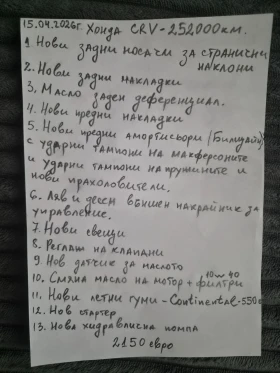 15.04.2026г. Хонда CRV - 252,000 км.
1 Нови задни носачи за странични
наклони
2. Нови задни накладки
3, Масло заден деференциал.
4. Нови предни накладки
5. Нови предни амортисьори /Билщайн/
с ударни тампони на макферсоните
и ударни тампони на пружините и
нови прахоловители.
6. Ляв и десен външен накрайник за
управление.
7. Нови свещи
8. Реглаж на клапани
9. Нов датчик за маслото
10. Смяна масло на мотор + филтри
10w40
11. Нови летни гуми - Continental - 550
12. Нов стартер
13. Нова хидравлична помпа
2150 евро